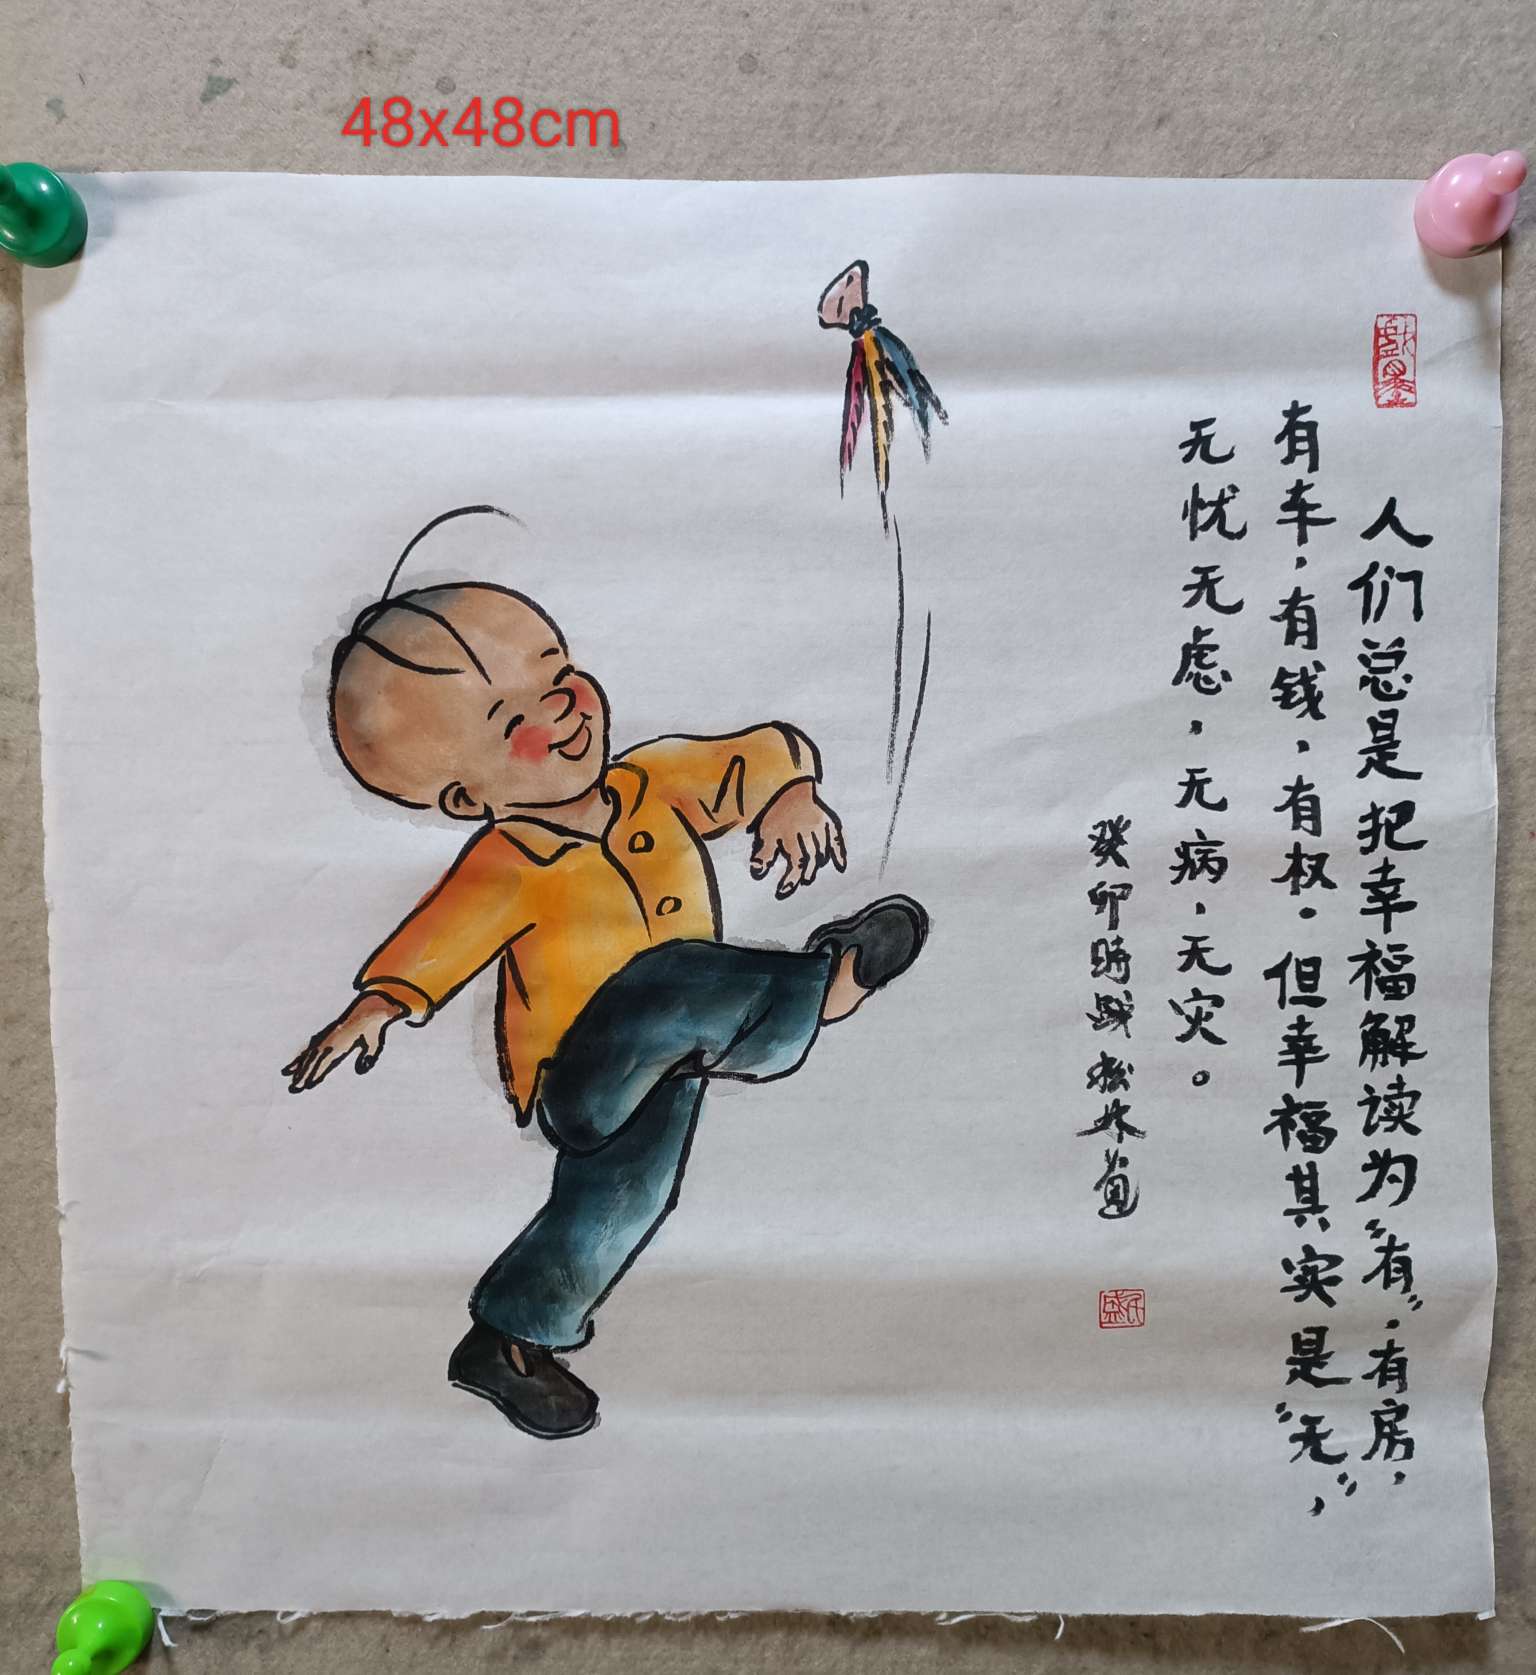 48x48cm
人们总是把幸福解读为“有”，有房，
有车，有钱，有权。但幸福其实是“无”，
无忧无虑，无病，无灾。
癸卯時戬松林画